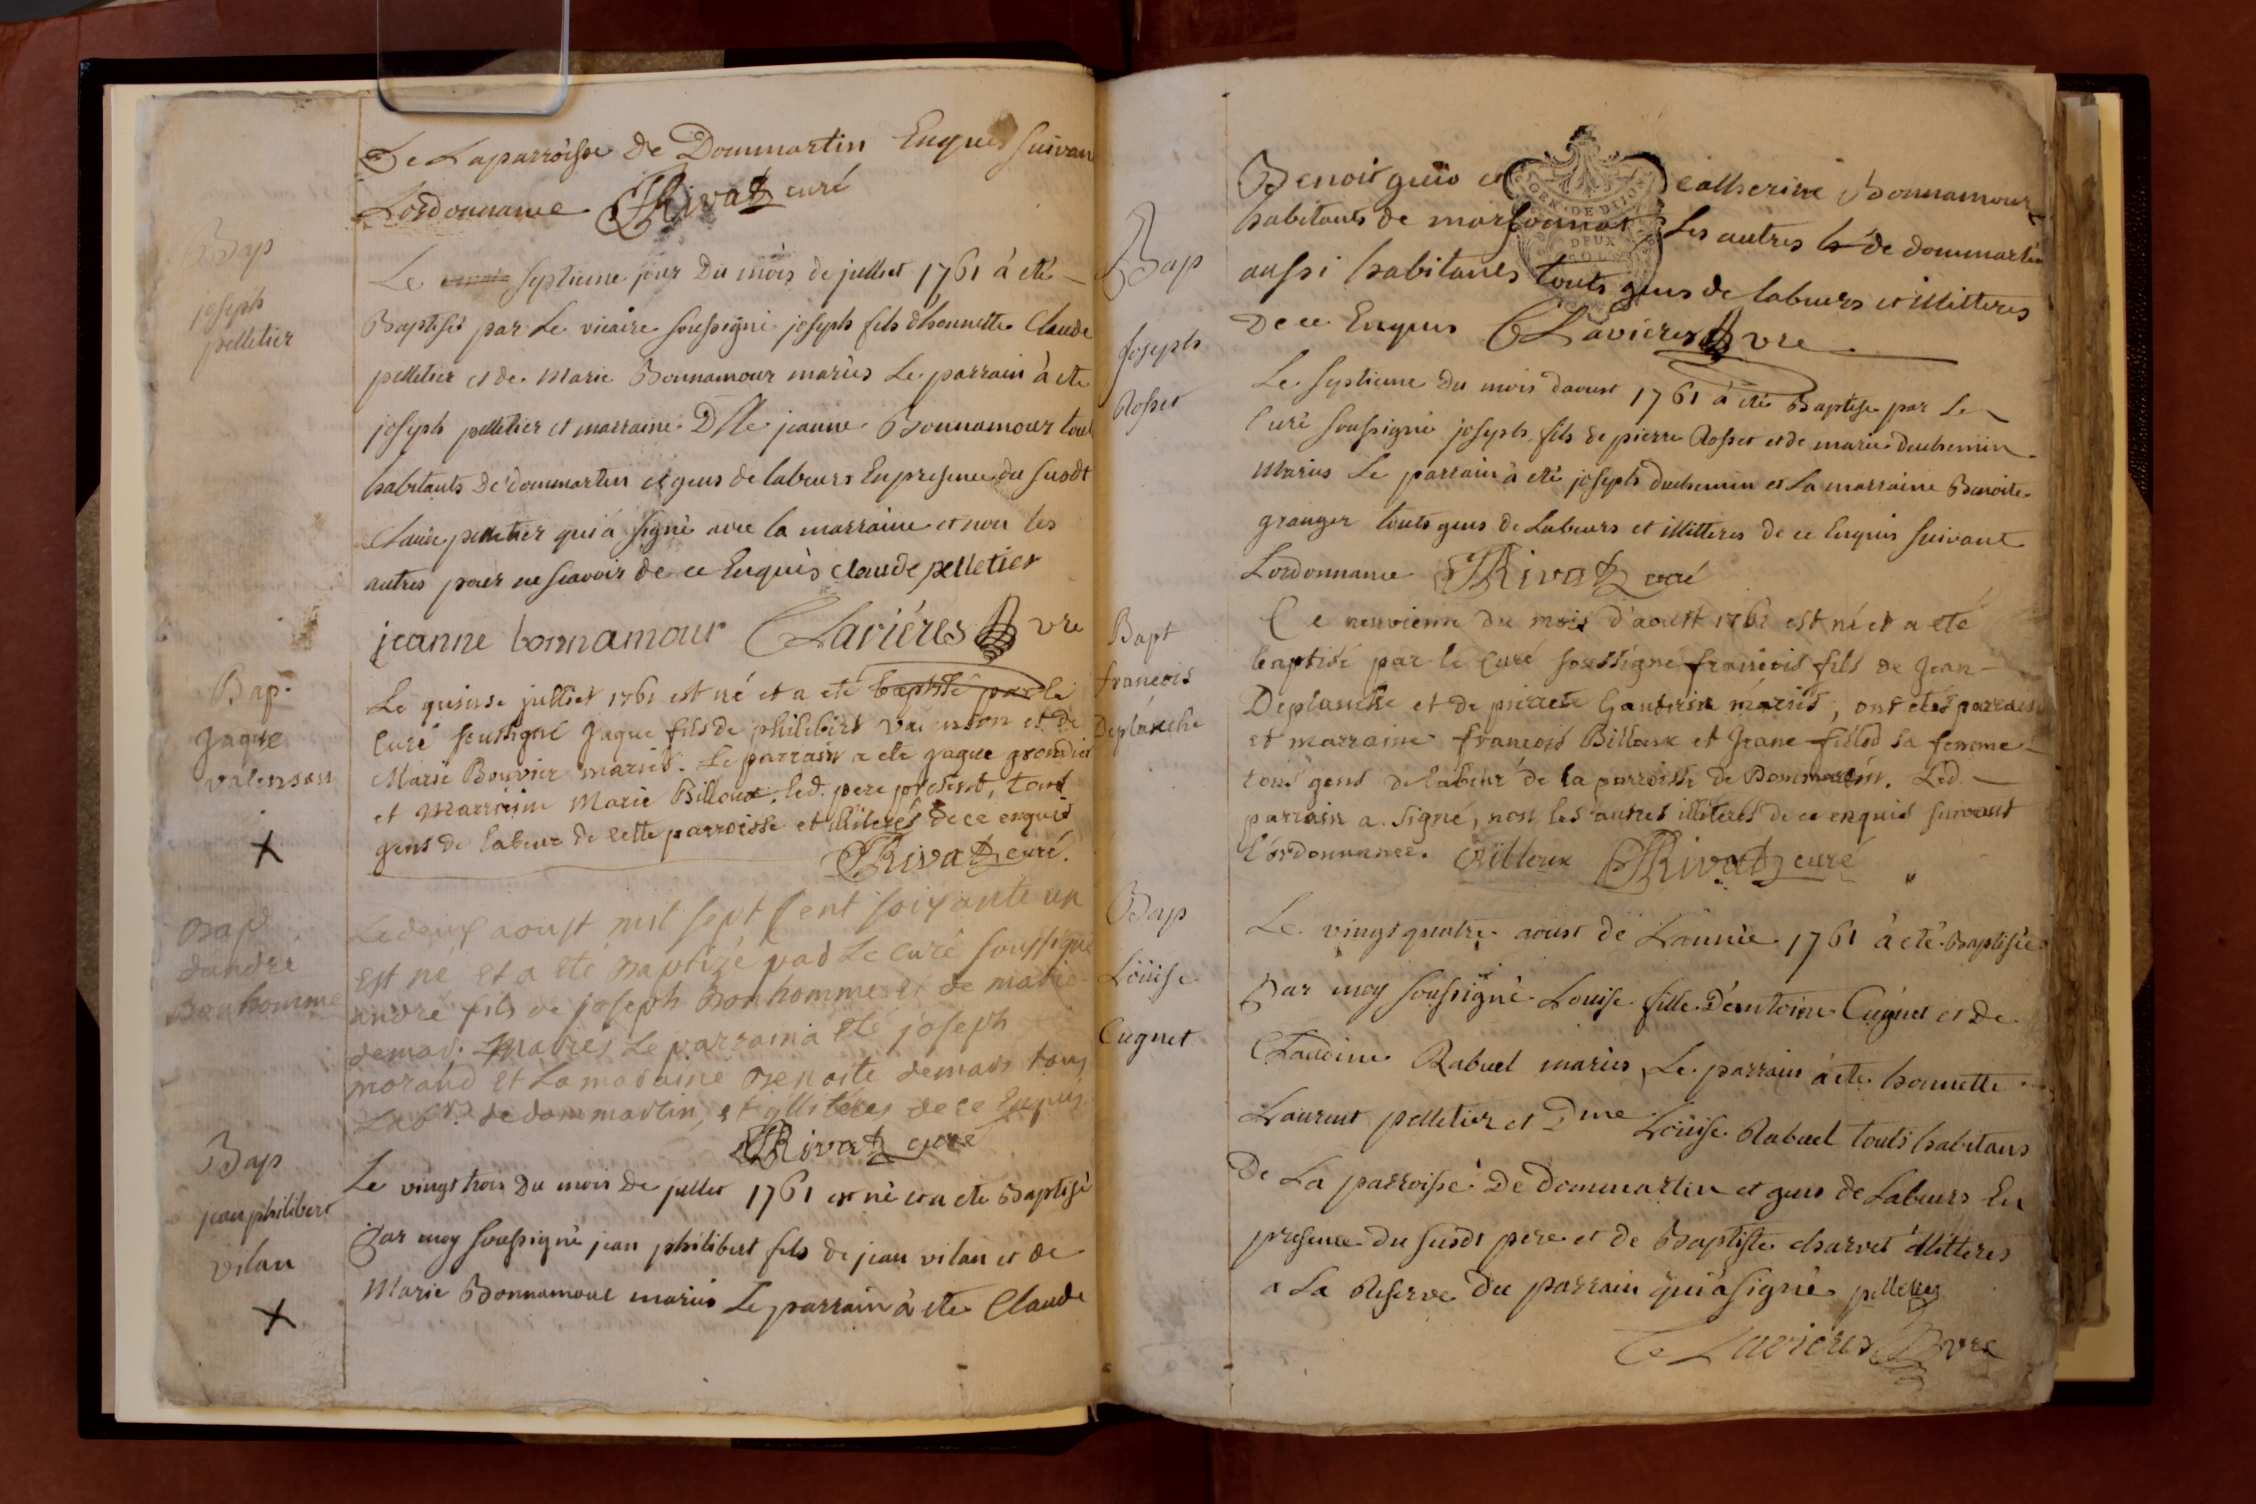 De Laparroisse de Dommartin Enquis suivan
Lordonnance Rivat curé
Bap
joseph
pelletier
Le septieme jour Du mois de juillet 1761 à eté
Baptisés par Le vicaire soussigné joseph fils d'honnette Claude
pelletier et de Marie Bonnamour mariés Le parrain à ete
joseph pelletier et marraine Dlle jeanne Bonnamour tout
habitants De dommartin et gens de labeurs En presence du susdt
Claude pelletier qui à signé avec la marraine et non les
autres pour ne scavoir de ce Enquis claude pelletier
jeanne bonnamour Clavières vre
Bap.
Jaque
valenson
Le quinse juilliet 1761 est né et a eté baptisé par le
Curé soussigné Jaque fils de philibert Valenson et de
Marie Bouvier mariés. Le parrain a ete jaque grondier
et marraine Marie Billoux. led. pere present, tous
gens de labeur de cette parroisse et illiterés de ce enquis
Rivat curé.
Bap
dandre
Bonhomme
Le deux aoust mil sept Cent soixante un
est né et a eté Baptizé pad Le curé soussigné
andré fils de joseph Bonhomme et de marie
demad. Madies Le parrain a eté joseph
morand et La madaine Benoite demads tous
Labrs. de dommartin et illiteres de ce Enquis
Rivat curé
Bap
jean philibert
vilan
Le vingt trois Du mois de juillet 1761 est né et a eté Baptisé
Par moy soussigné jean philibert fils de jean vilan et de
Marie Bonnamour mariés Le parrain à ete Claude
Benoit guio et Catherine Bonnamour
habitants de marsonnas Les autres de dommartin
aussi habitants touts gens de labeurs et illitteres
De ce Enquis Clavieres vre
GEN. DE DIJON
DEUX
Bap
Joseph
Rosset
Le septieme du mois d'aoust 1761 à eté Baptise par Le
Curé soussigné joseph fils de pierre Rosset et de marie duchemin
Mariés Le parrain à eté joseph duchemin et La marraine Benoite
granger touts gens de Labeurs et illitteres de ce Enquis suivant
Lordonnance Rivat curé
Bapt
francois
Deplanche
Le neuvieme du mois d'aoust 1761 est né et a eté
baptisé par le Curé soussigné francois fils de Jean
Deplanche et de pierrete Gauterin mariés, ont etés parrain
et marraine francois Billoux et Jeane fillod sa femme
tous gens de labeur de la parroisse de Dommartin. Led.
parrain a signé, non les autres illiterés de ce enquis suivant
l'ordonnance. Billoux Rivat curé
Bap
Loüise
Cugnet
Le vingt quatre aoust de L'année 1761 à eté Baptisée
Par moy soussigné Louise fille d'entoine Cugnet et de
Claudine Rabuel mariés Le parrain à ete honnette
Laurent pelletier et Dme Loüise Rabuel touts habitans
De La parroisse De Dommartin et gens de Labeurs En
presence du susdt pere et de Baptiste charvet illitteres
a La Reserve du parrain qui à signé pelletier
Clavieres vre